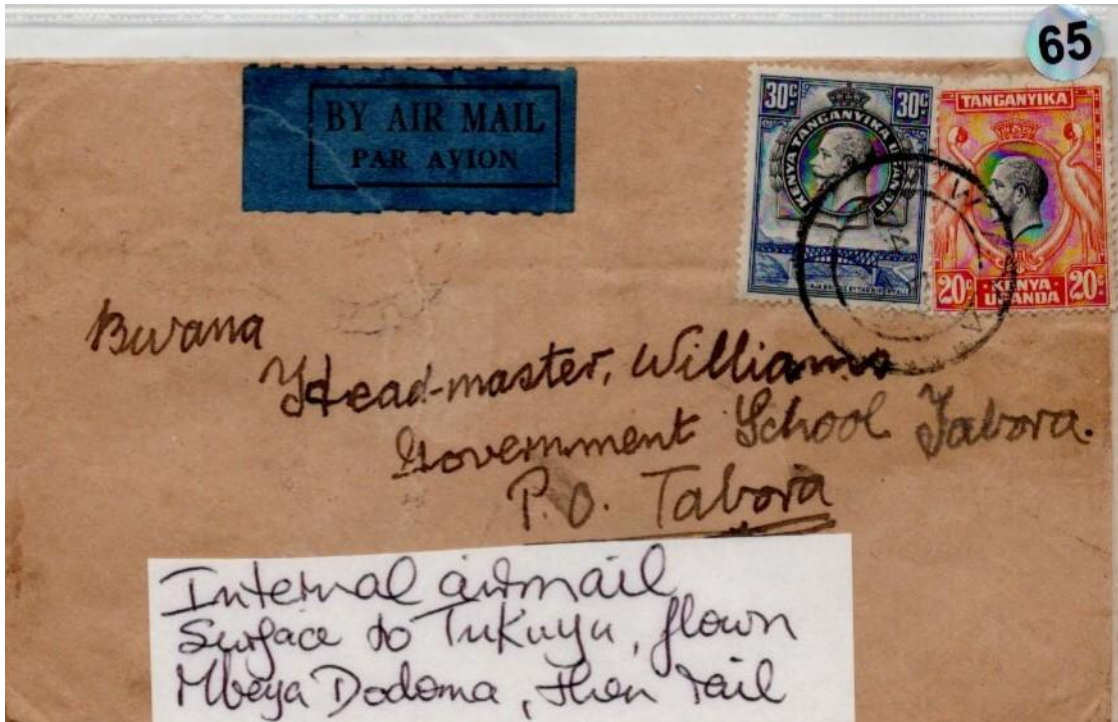 65
BY AIR MAIL
PAR AVION
30c 30c
KENYA TANGANYIKA UGANDA
TANGANYIKA
20c KENYA UGANDA 20c
Bwana
Head-master, Williams
Government School Tabora.
P.O. Tabora
Internal airmail
Surface to Tukuyu, flown
Mbeya Dodoma, then rail